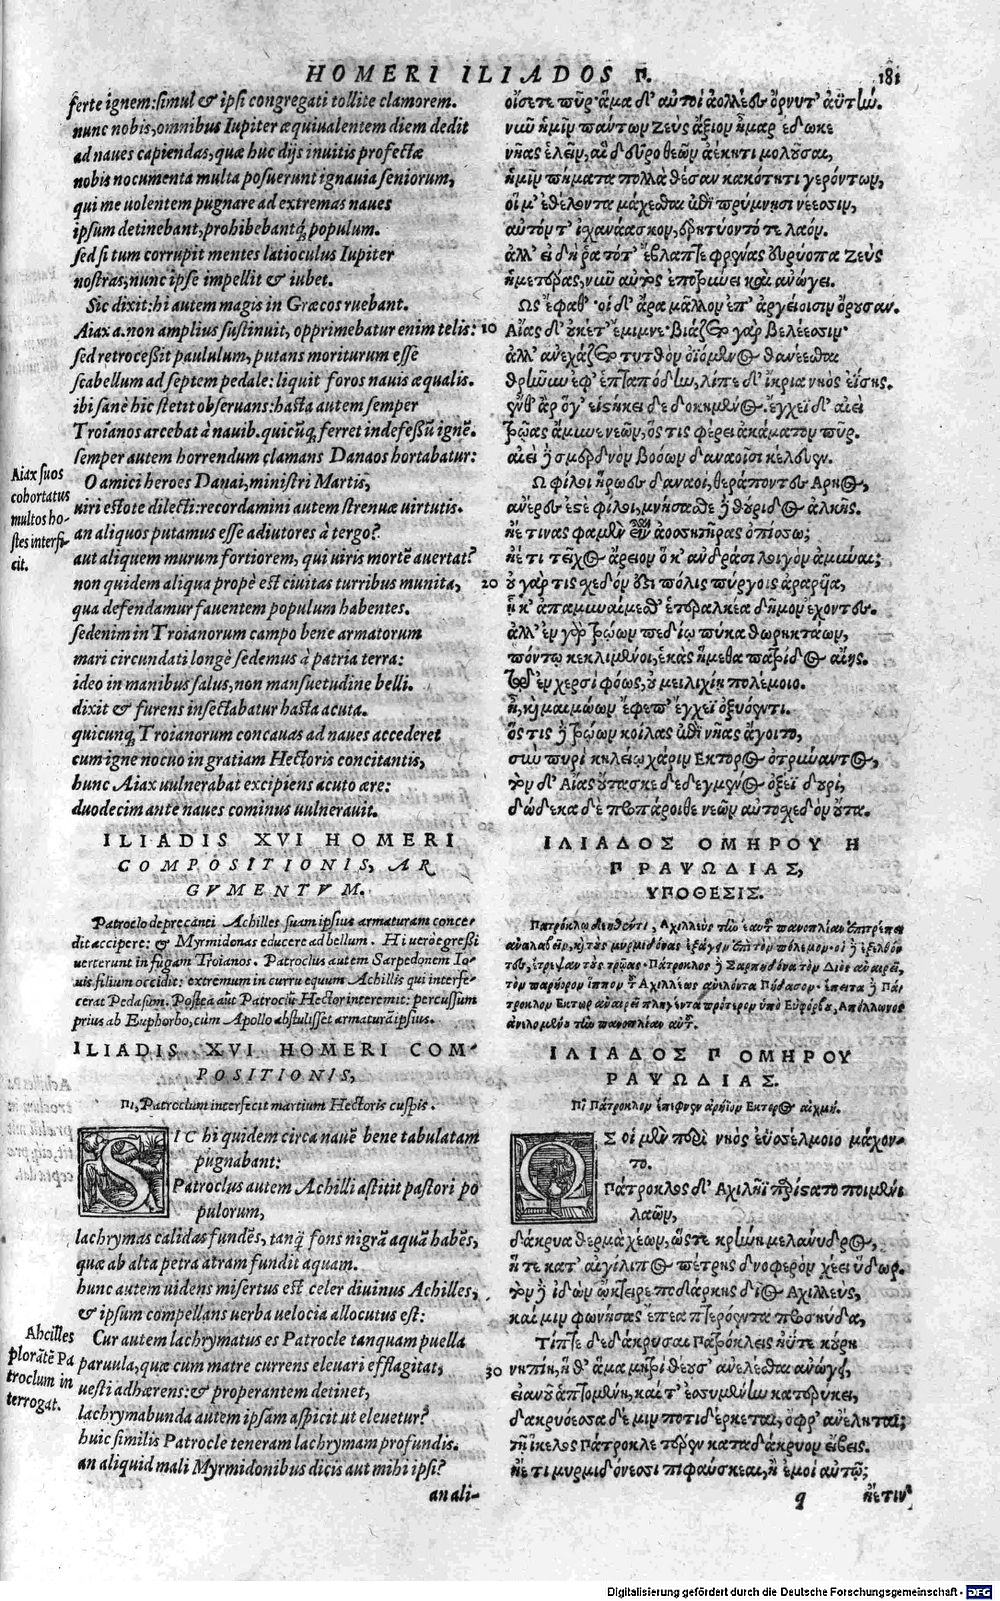 HOMERI ILIADOS Π. 181
ferte ignem: simul & ipsi congregati tollite clamorem.
nunc nobis, omnibus Iupiter æquiualentem diem dedit
ad naues capiendas, quæ huc dijs inuitis profectæ
nobis nocumenta multa posuerunt ignauia seniorum,
qui me uolentem pugnare ad extremas naues
ipsum detinebant, prohibebantq́; populum.
sed si tum corrupit mentes latioculus Iupiter
nostras, nunc ipse impellit & iubet.
Sic dixit: hi autem magis in Græcos ruebant.
Aiax a. non amplius sustinuit, opprimebatur enim telis:
sed retrocessit paululum, putans moriturum esse
scabellum ad septem pedale: liquit foros nauis æqualis.
ibi sanè hic stetit obseruans: hasta autem semper
Troianos arcebat à nauib. quicūq; ferret indefessū ignē.
semper autem horrendum clamans Danaos hortabatur:
Aiax suos
cohortatus
multos ho-
stes interfi-
cit.
O amici heroes Danai, ministri Martis,
uiri estote dilecti: recordamini autem strenuæ uirtutis.
an aliquos putamus esse adiutores à tergo?
aut aliquem murum fortiorem, qui uiris mortē auertat?
non quidem aliqua propè est ciuitas turribus munita,
qua defendamur fauentem populum habentes.
sed enim in Troianorum campo bene armatorum
mari circundati longè sedemus à patria terra:
ideo in manibus salus, non mansuetudine belli.
dixit & furens insectabatur hasta acuta.
quicunq; Troianorum concauas ad naues accederet
cum igne nocuo in gratiam Hectoris concitantis,
hunc Aiax vulnerabat excipiens acuto ære:
duodecim ante naues cominus vulnerauit.
ILIADIS XVI HOMERI
COMPOSITIONIS, AR
GVMENTVM.
Patroclo deprecanti Achilles suam ipsius armaturam conce-
dit accipere: & Myrmidonas educere ad bellum. Hi uerò egressi
uerterunt in fugam Troianos. Patroclus autem Sarpedonem Io-
uis filium occidit: extremum in curru equum Achillis qui interfe-
cerat Pedasum. Postea aūt Patroclū Hector interemit: percussum
prius ab Euphorbo, cùm Apollo abstulisset armaturā ipsius.
ILIADIS XVI HOMERI COM-
POSITIONIS,
Πῖ, Patroclum interfecit martium Hectoris cuspis.
SIC hi quidem circa nauē bene tabulatam
pugnabant:
Patroclus autem Achilli astitit pastori po
pulorum,
lachrymas calidas fundēs, tanq̃ fons nigrā aquā habēs,
quæ ab alta petra atram fundit aquam.
hunc autem uidens misertus est celer diuinus Achilles,
& ipsum compellans uerba uelocia allocutus est:
Ahcilles
plorātē Pa
troclum in
terrogat.
Cur autem lachrymatus es Patrocle tanquam puella
paruula, quæ cum matre currens eleuari efflagitat,
uesti adhærens: & properantem detinet,
lachrymabunda autem ipsam aspicit ut eleuetur?
huic similis Patrocle teneram lachrymam profundis.
an aliquid mali Myrmidonibus dicis aut mihi ipsi?
an ali-
οἴσετε πῦρ· ἅμα δ' αὐτοὶ ἀολλέες ὄρνυτ' ἀϋτίω.
νῦν ἡμῖν πάντων Ζεὺς ἄξιον ἦμαρ ἔδωκε
νῆας ἑλεῖν, αἳ δεῦρο θεῶν ἀέκητι μολοῦσαι,
ἡμῖν πήματα πολλὰ θέσαν κακότητι γερόντων,
οἵ μ' ἐθέλοντα μάχεσθαι ἐπὶ πρύμνησι νέεσσιν,
αὐτόν τ' ἰχανάασκον, ἐρητύοντό τε λαόν.
ἀλλ' εἰ δή ῥα τότ' ἔβλαπτε φρένας εὐρύοπα Ζεὺς
ἡμετέρας, νῦν αὐτὸς ἐποτρύνει καὶ ἀνώγει.
Ως ἔφαθ'· οἱ δ' ἄρα μᾶλλον ἐπ' ἀργείοισιν ὄρουσαν.
10 Αἴας δ' οὐκέτ' ἔμιμνε· βιάζετο γὰρ βελέεσσιν·
ἀλλ' ἀνεχάζετο τυτθὸν ὀϊόμενος θανέεσθαι
θρῆνυν ἐφ' ἑπταπόδην, λίπε δ' ἴκρια νηὸς ἐΐσης.
ἔνθ' ἄρ ὅγ' εἱστήκει δεδοκημένος. ἔγχεϊ δ' αἰεὶ
τρῶας ἄμυνε νεῶν, ὅς τις φέρει ἀκάματον πῦρ.
αἰεὶ δὲ σμερδνὸν βοόων δαναοῖσι κέλευεν.
Ω φίλοι ἥρωες δαναοὶ, θεράποντες Αρηος,
ἀνέρες ἐστὲ φίλοι, μνήσασθε δὲ θούριδος ἀλκῆς.
ἠέ τινας φαμὲν εἶναι ἀοσσητῆρας ὀπίσσω;
ἠέ τι τεῖχος ἄρειον ὅ κ' ἀνδράσι λοιγὸν ἀμύναι;
20 οὐ γάρ τις χεδόν ἐστι πόλις πύργοις ἀραρυῖα,
ᾗ κ' ἀπαμυναίμεσθ' ἑτεραλκέα δῆμον ἔχοντες.
ἀλλ' ἐν γὰρ τρώων πεδίῳ πύκα θωρηκτάων,
πόντῳ κεκλιμένοι, ἑκὰς ἥμεθα πατρίδος αἴης.
τῷ ἐν χερσὶ φόως, οὐ μειλιχίη πολέμοιο.
ἦ, καὶ μαιμώων ἔφεπ' ἔγχεϊ ὀξυόεντι.
ὅς τις δὲ τρώων κοίλας ἐπὶ νῆας ἄγοιτο,
σὺν πυρὶ κηλείῳ χάριν Εκτορος ὀτρύναντος,
τὸν δ' Αἴας οὔτασκε δεδεγμένος ὀξέϊ δουρί,
δώδεκα δὲ προπάροιθε νεῶν αὐτοσχεδὸν οὖτα.
ΙΛΙΑΔΟΣ ΟΜΗΡΟΥ Η
Π ΡΑΨΩΔΙΑΣ,
ΥΠΟΘΕΣΙΣ.
Πατρόκλῳ δεηθέντι, Αχιλλεὺς τὴν ἑαυτοῦ πανοπλίαν ἐπιτρέπει
ἀναλαβεῖν, καὶ τοὺς μυρμιδόνας ἐξάγειν ἐπὶ τὸν πόλεμον· οἱ δὲ ἐξελθόν
τες, ἔτρεψαν τοὺς τρῶας· Πάτροκλος δὲ Σαρπηδόνα τὸν Διὸς ἀναιρεῖ,
τὸν παρήορον ἵππον τοῦ Αχιλλέως ἀνελόντα Πήδασον· ἔπειτα δὲ Πά
τροκλον Εκτωρ ἀναιρεῖ πληγέντα πρότερον ὑπὸ Εὐφόρβου, Απόλλωνος
ἀνελομένου τὴν πανοπλίαν αὐτοῦ.
ΙΛΙΑΔΟΣ Π ΟΜΗΡΟΥ
ΡΑΨΩΔΙΑΣ.
Πῖ Πάτροκλον ἔπεφνεν ἀρήϊον Εκτορος αἰχμή.
ΩΣ οἱ μὲν περὶ νηὸς ἐϋσέλμοιο μάχον-
το.
Πάτροκλος δ' Αχιλῆϊ πρίσατο ποιμένι
λαῶν,
δάκρυα θερμὰ χέων, ὥστε κρήνη μελάνυδρος,
ἥ τε κατ' αἰγίλιπος πέτρης δνοφερὸν χέει ὕδωρ.
τὸν δὲ ἰδὼν ᾤκτειρε ποδάρκης δῖος Αχιλλεύς,
καί μιν φωνήσας ἔπεα πτερόεντα προσηύδα,
Τίπτε δεδάκρυσαι Πατρόκλεις ἠΰτε κούρη
30 νηπίη, ἥ θ' ἅμα μητρὶ θέουσ' ἀνελέσθαι ἀνώγει,
εἱανοῦ ἁπτομένη, καί τ' ἐσσυμένην κατερύκει,
δακρυόεσσα δέ μιν ποτιδέρκεται, ὄφρ' ἀνέληται;
τῇ ἴκελος Πάτροκλε τέρεν κατὰ δάκρυον εἴβεις.
ἠέ τι μυρμιδόνεσσι πιφαύσκεαι, ἢ ἐμοὶ αὐτῷ;
q ἠέ τιν'
Digitalisierung gefördert durch die Deutsche Forschungsgemeinschaft - DFG